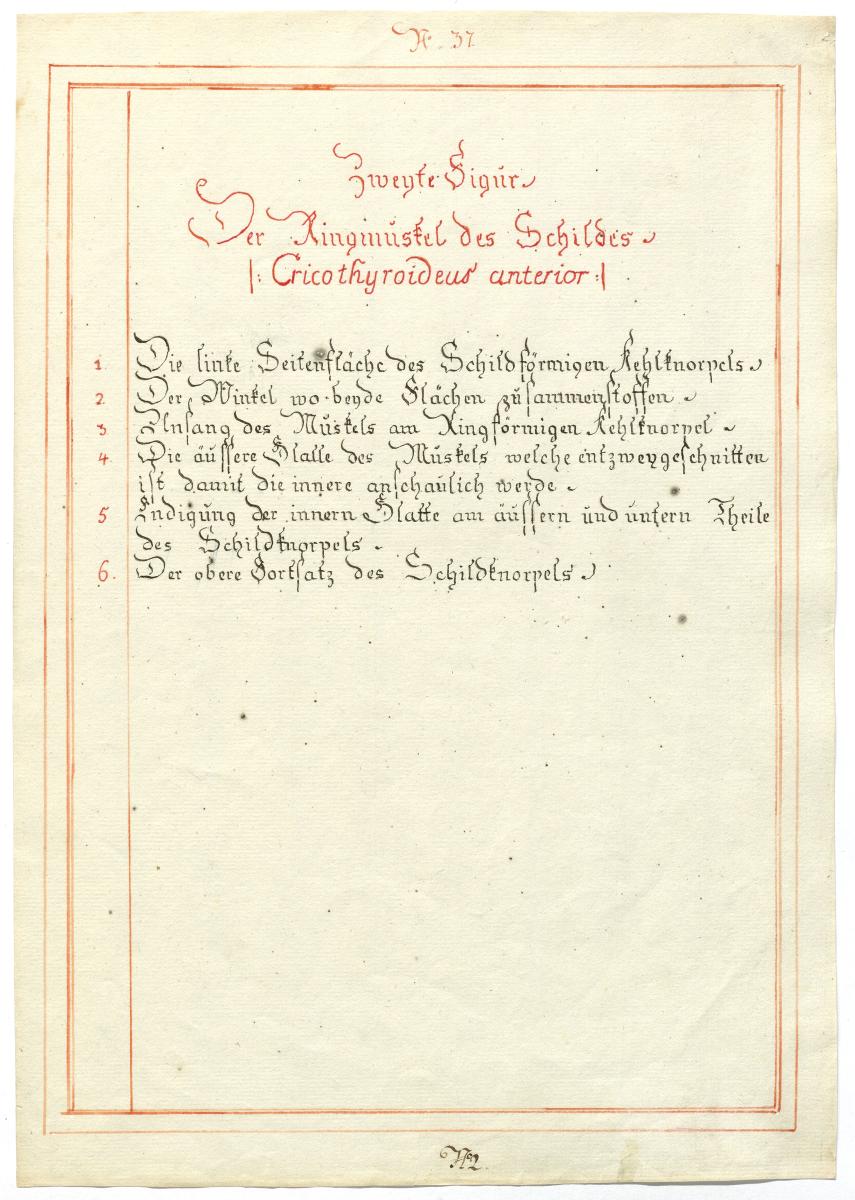 N. 37
Zweyte Figur
Der Ringmuskel des Schildes
|: Cricothyroideus anterior :|
1 Die linke Seitenfläche des Schildförmigen Kehlknorpels
2 Der Winkel wo beyde Flächen zusammenstoffen
3 Anfang des Muskels am Ringförmigen Kehlknorpel
4 Die äussere Platte des Muskels welche entzweygeschnitten
ist damit die innere anschaulich werde
5 Endigung der innern Platte am äussern und untern Theile
des Schildknorpels
6. Der obere Fortsatz des Schildknorpels